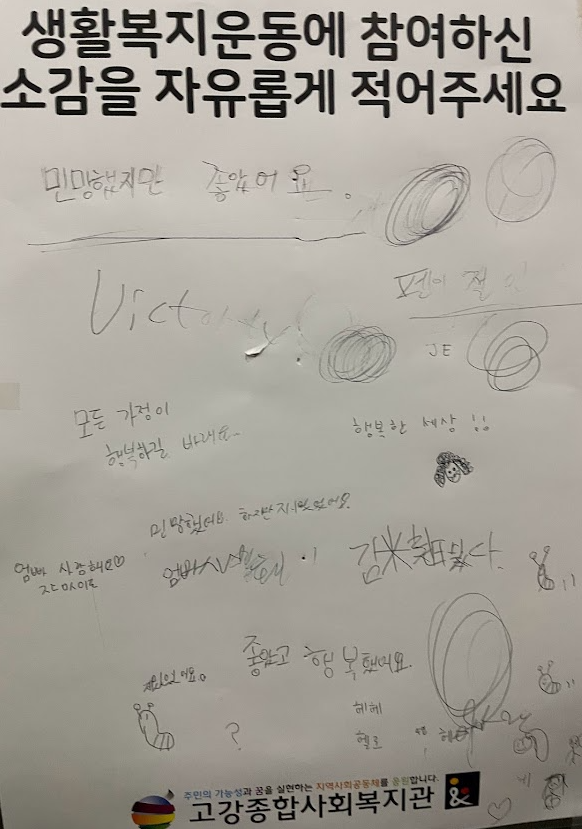 생활복지운동에 참여하신
소감을 자유롭게 적어주세요
민망했지만 좋았어요.
Victory!
펜이
JE
모든 가정이
행복하길 바래요~
행복한 세상 !!
민망했어요. 하지만 재미있었어요.
엄빠 사랑해요♡
엄빠사랑해
좋았고 행복했어요.
재밌었어요.
헤헤
헬로
?
주민의 가능성과 꿈을 실현하는 지역사회공동체를 응원합니다.
고강종합사회복지관